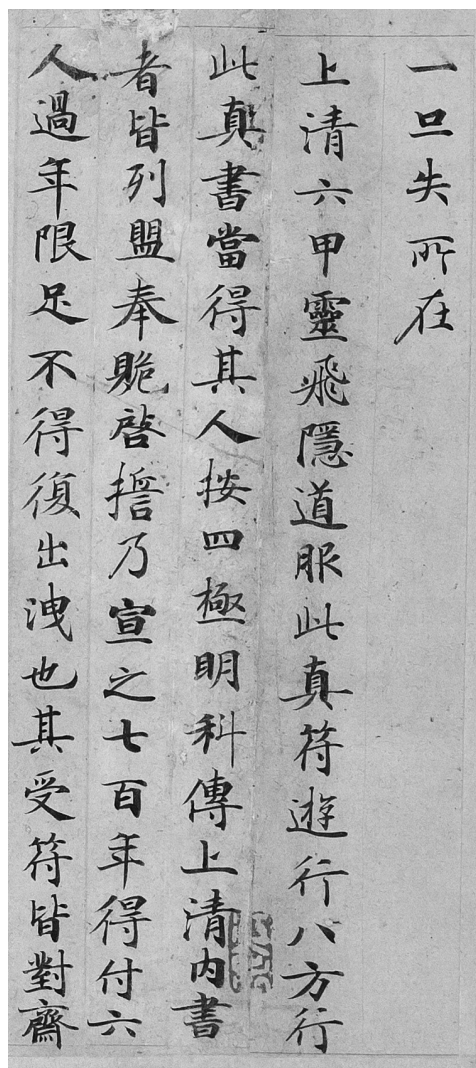 一旦失所在
上清六甲靈飛隱道服此真符遊行八方行
此真書當得其人按四極明科傳上清内書
者皆列盟奉貺啓誓乃宣之七百年得付六
人過年限足不得復出洩也其受符皆對齋